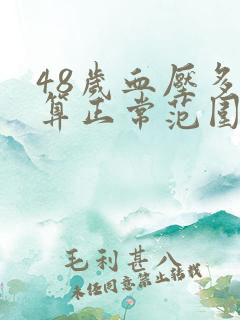 48歲血壓多
算正常范围
毛利甚八
未经同意禁止转载